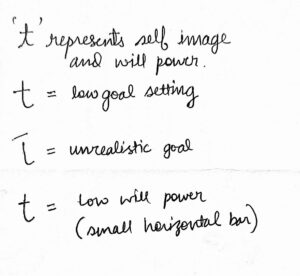 't' represents self image
and will power.
t = low goal setting
t = unrealistic goal
t = Low will power
(small horizontal bar)